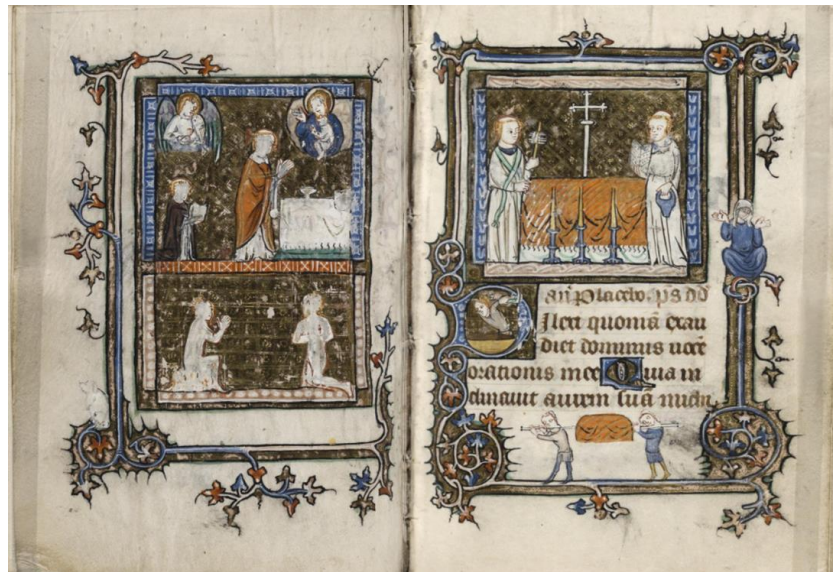 añ Placebo. p̄s dd̄
Ilexi quoniā exau
diet dominus uocē
orationis mee Quia in
clinauit aurem suā michi